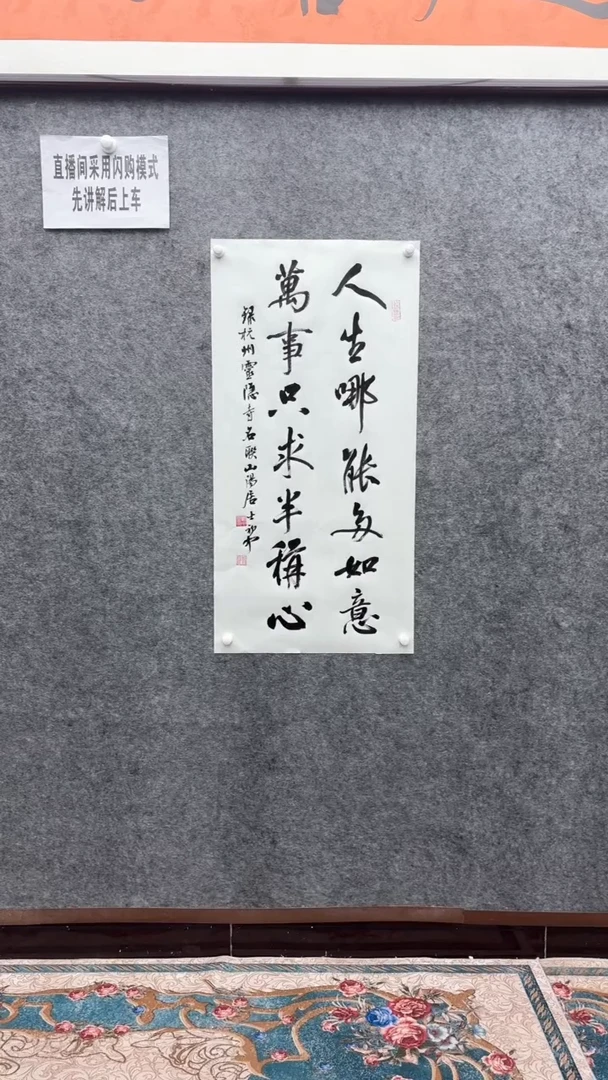 直播间采用闪购模式
先讲解后上车
人生哪能多如意
萬事只求半稱心
録杭州靈隐寺名联山阳居士